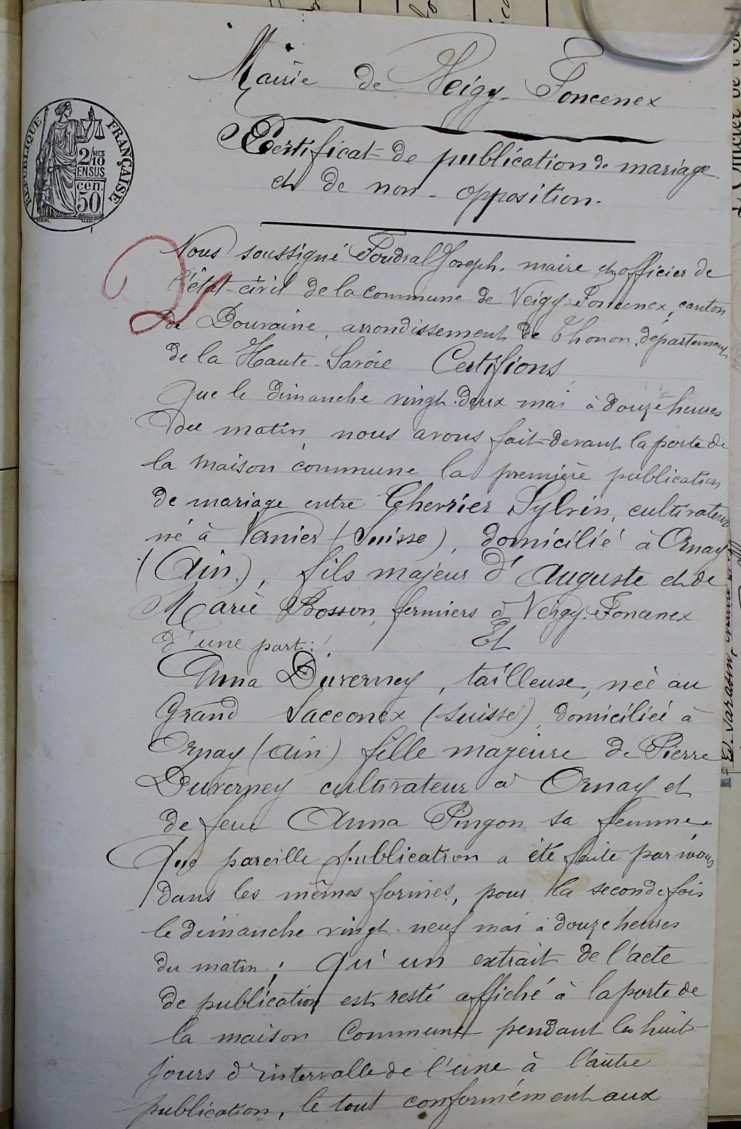 Mairie de Veigy-Foncenex
Certificat de publication de mariage
et de non-opposition.
RÉPUBLIQUE FRANÇAISE
2/10 EN SUS
50 cen.
2
Nous soussigné Joseph, maire et officier de
l'état-civil de la commune de Veigy-Foncenex, canton
de Douvaine, arrondissement de Thonon, département
de la Haute-Savoie Certifions
Que le dimanche vingt-deux mai à douze heures
du matin nous avons fait devant la porte de
la maison commune la première publication
de mariage entre Cherrier Sylvin, cultivateur
né à Vernier (Suisse), domicilié à Ornay
(Ain), fils majeur d'Auguste et de
Marie Bosson, fermiers à Veigy-Foncenex
d'une part; Et
Anna Duverney, tailleuse, née au
Grand Sacconex (Suisse), domiciliée à
Ornay (Ain) fille majeure de Pierre
Duverney cultivateur à Ornay et
de feue Anna Pingon sa femme.
Que pareille publication a été faite par nous
dans les mêmes formes, pour la seconde fois
le dimanche vingt-neuf mai à douze heures
du matin; qu'un extrait de l'acte
de publication est resté affiché à la porte de
la maison Commune pendant les huit
jours d'intervalle de l'une à l'autre
publication, le tout conformément aux